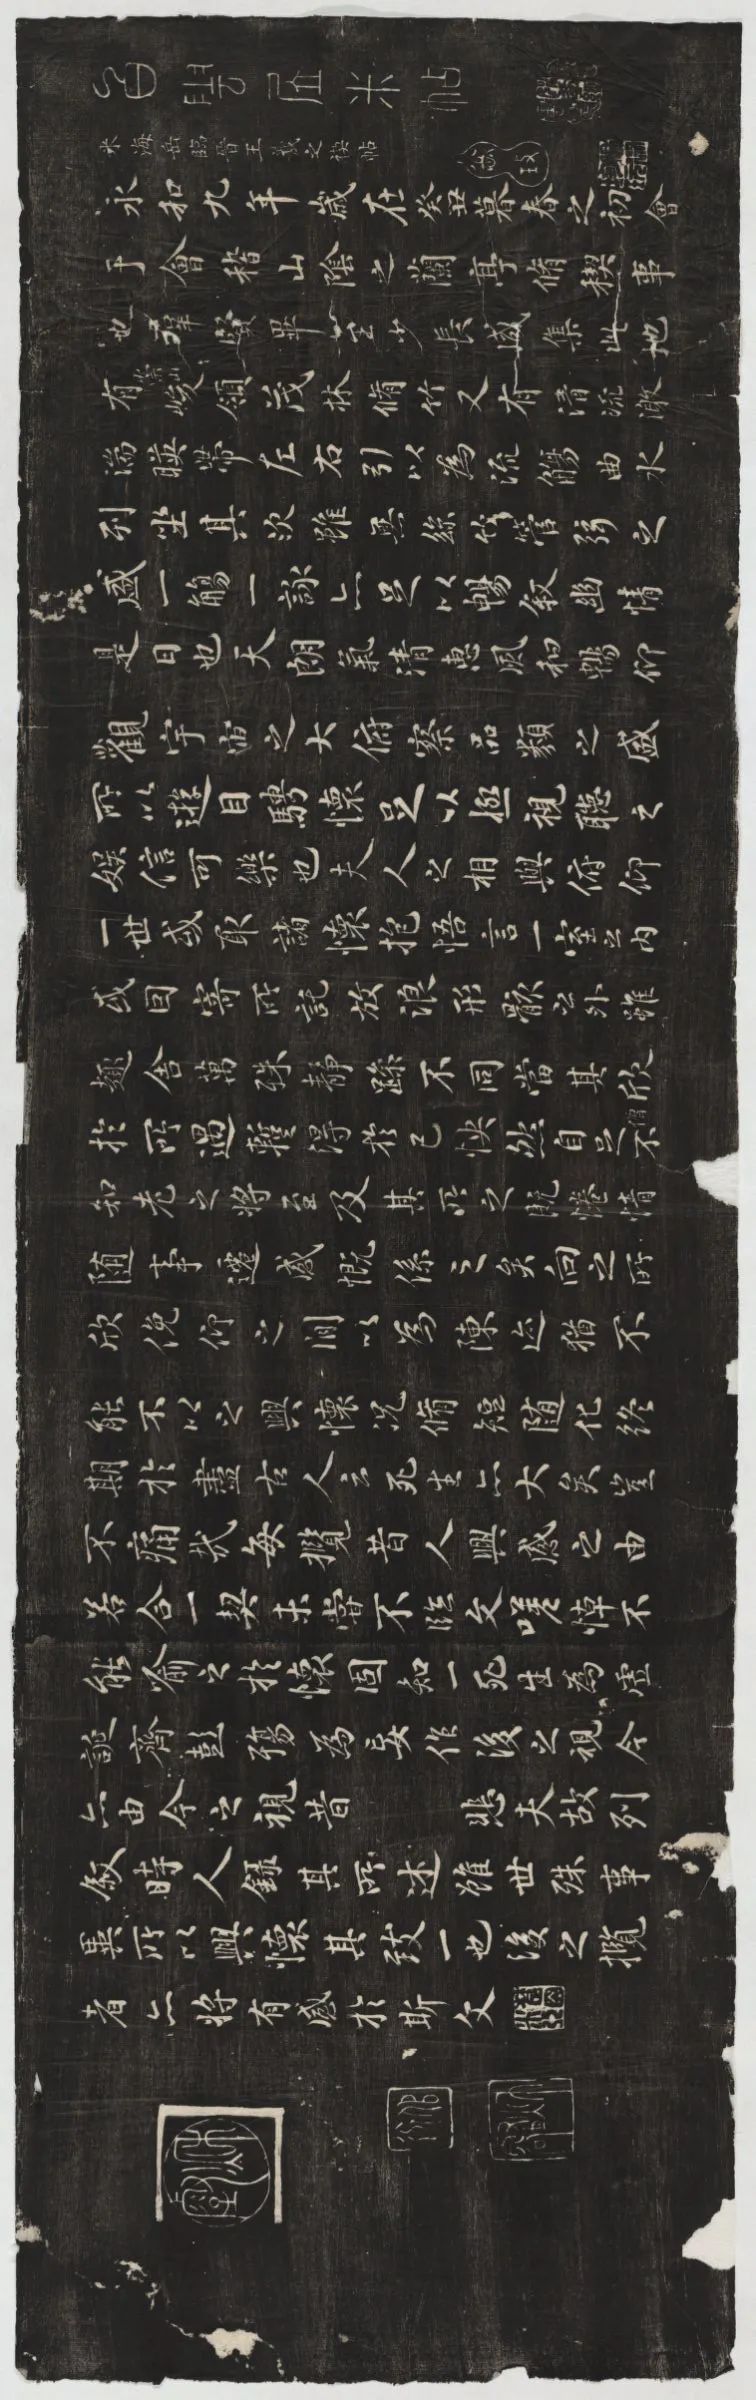 白雲居米帖
米海岳臨晉王羲之禊帖
永和九年歲在癸丑暮春之初會
于會稽山陰之蘭亭脩禊事
也羣賢畢至少長咸集此地
有崇山峻領茂林脩竹又有清流激
湍暎帶左右引以為流觴曲水
列坐其次雖無絲竹管弦之
盛一觴一詠亦足以暢敘幽情
是日也天朗氣清惠風和暢仰
觀宇宙之大俯察品類之盛
所以遊目騁懷足以極視聽之
娛信可樂也夫人之相與俯仰
一世或取諸懷抱悟言一室之內
或因寄所託放浪形骸之外雖
趣舍萬殊靜躁不同當其欣
於所遇蹔得於己怏然自足不
僧
知老之將至及其所之既惓情
隨事遷感慨係之矣向之所
欣俛仰之間以為陳迹猶不
能不以之興懷況脩短隨化終
期於盡古人云死生亦大矣豈
不痛哉每攬昔人興感之由
若合一契未嘗不臨文嗟悼不
能喻之於懷固知一死生為虛
誕齊彭殤為妄作後之視今
亦由今之視昔 悲夫故列
敘時人錄其所述雖世殊事
異所以興懷其致一也後之攬
者亦將有感於斯文